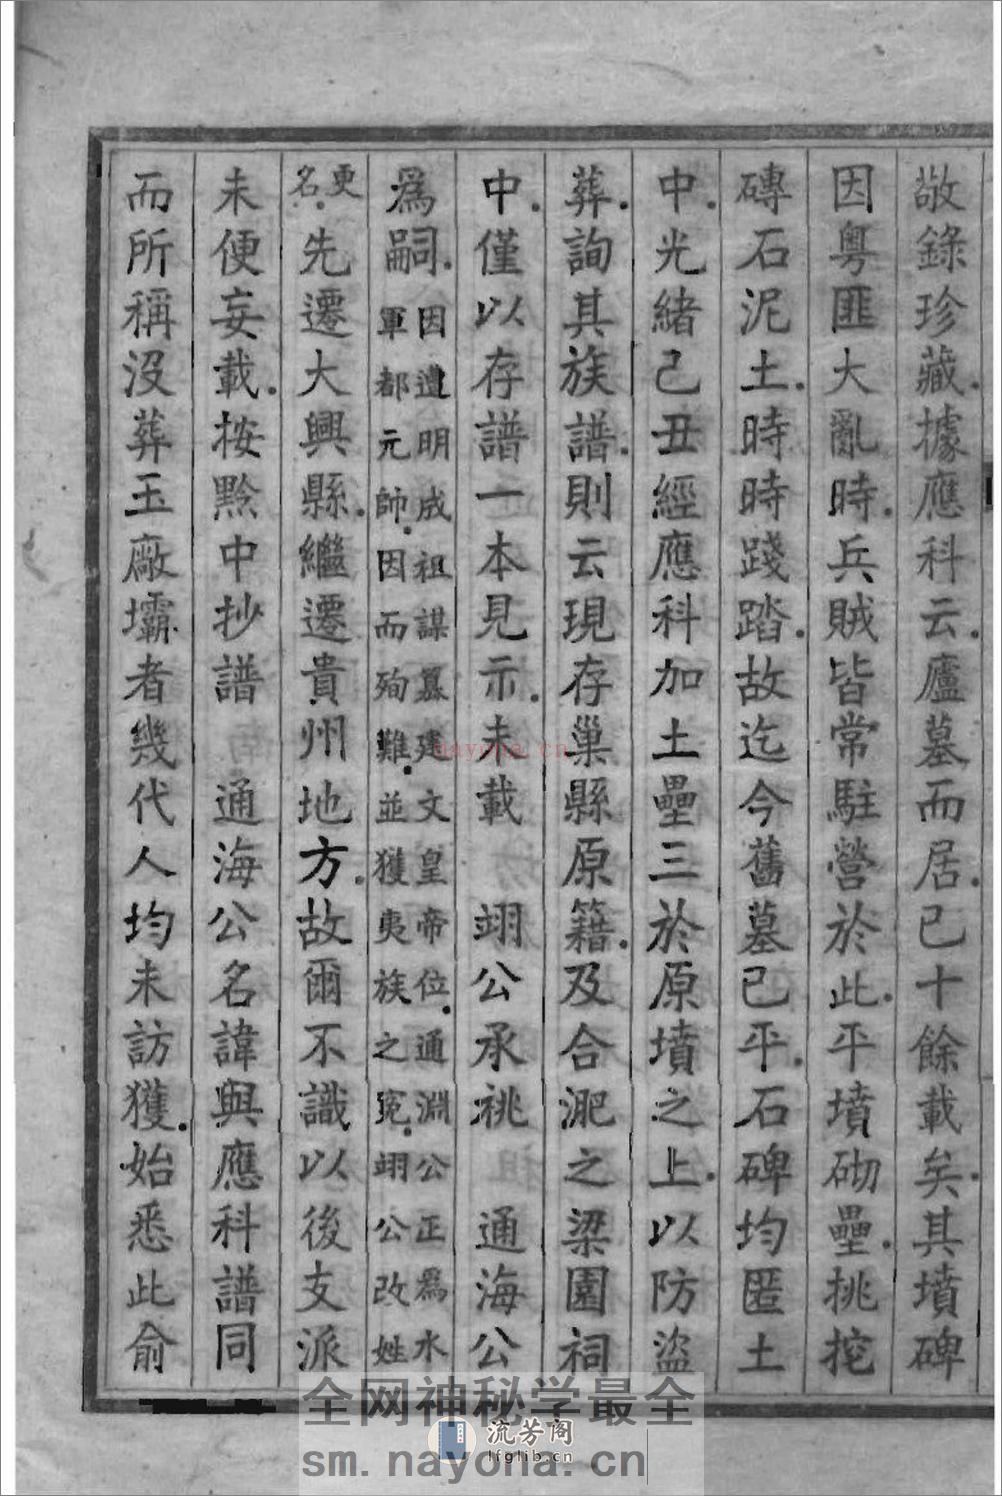 敬錄珍藏據應科云廬墓而居已十餘載矣其墳碑
因粵匪大亂時兵賊皆常駐營於此平墳砌壘挑挖
磚石泥土時時踐踏故迄今舊墓已平石碑均匿土
中光緒己丑經應科加土壘三於原墳之上以防盜
葬詢其族譜則云現存巢縣原籍及合淝之梁園祠
中僅以存譜一本見示未載 翊公承祧 通海公
爲嗣因遭明成祖謀纂建文皇帝位通淵公正爲水
軍都元帥因而殉難並獲夷族之冤翊公改姓
更名先遷大興縣繼遷貴州地方故爾不識以後支派
未便妄載按黔中抄譜 通海公名諱與應科譜同
而所稱沒葬玉廠壩者幾代人均未訪獲始悉此俞
nayona.cn
全网神秘学最全
流芳阁
lfglib.cn
sm.nayona.cn